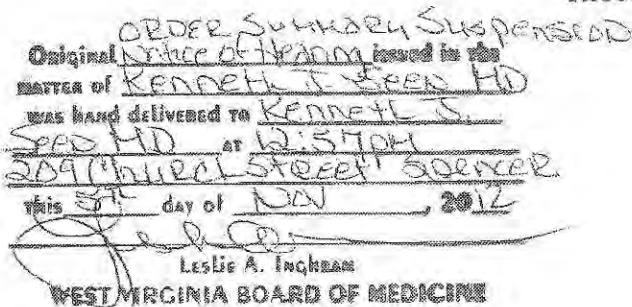 ORDER SUMMARY SUSPENSION
Original Notice of Hearing issued in the
MATTER of Kenneth J. Seen MD
was hand delivered to Kenneth J.
Seen MD AT 12:57pm
209 Church Street Spencer
this 5th day of Nov, 2012
Leslie A. Inghram
WEST VIRGINIA BOARD OF MEDICINE